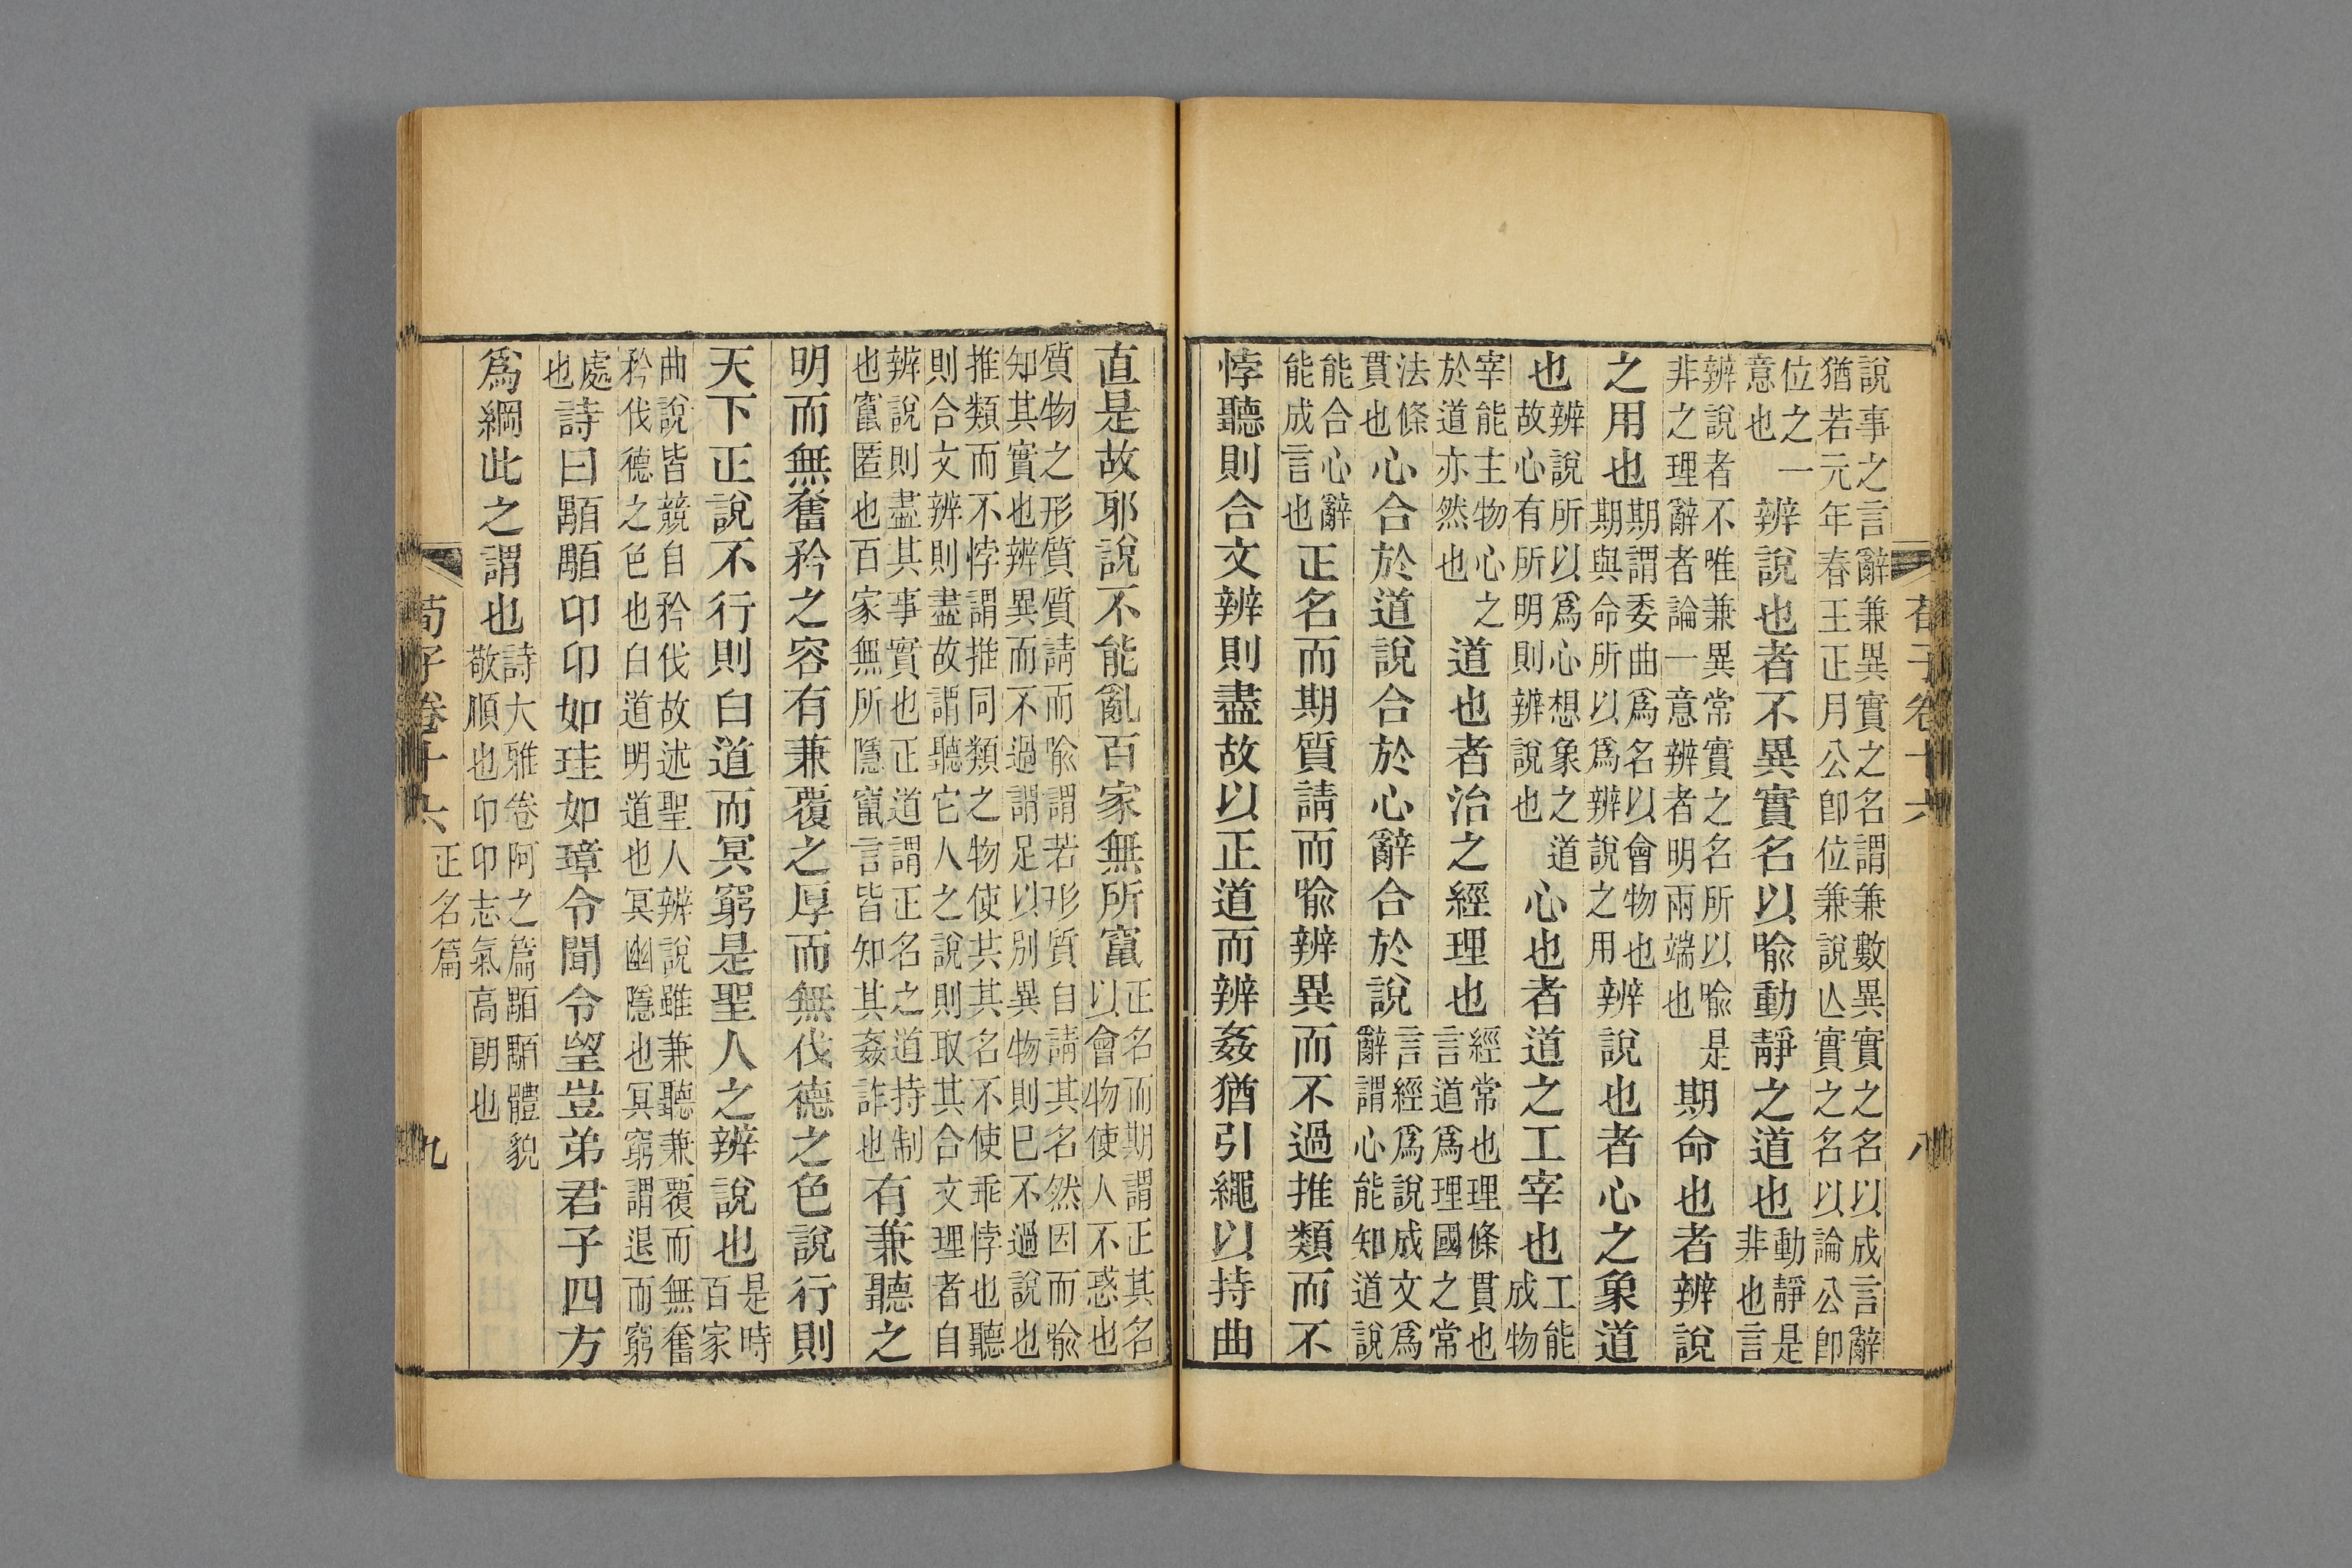 荀子卷十六
八
說事之言辭兼異實之名謂兼數異實之名以成言辭
猶若元年春王正月公卽位兼說亾實之名以論公卽
位之一
意也
辨說也者不異實名以喻動靜之道也
動靜是
非也言
辨說者不唯兼異常實之名所以喻是
非之理辭者論一意辨者明兩端也
期命也者辨說
之用也
期謂委曲爲名以會物也
期與命所以爲辨說之用
辨說也者心之象道
也
辨說所以爲心想象之道
故心有所明則辨說也
心也者道之工宰也
工能
成物
宰能主物心之
於道亦然也
道也者治之經理也
經常也理條貫也
言道爲理國之常
法條
貫也
心合於道說合於心辭合於說
言經爲說成文爲
辭謂心能知道說
能合心辭
能成言也
正名而期質請而喻辨異而不過推類而不
悖聽則合文辨則盡故以正道而辨姦猶引繩以持曲
直是故邪說不能亂百家無所竄
正名而期謂正其名
以會物使人不惑也
質物之形質質請而喻謂若形質自請其名然因而喻
知其實也辨異而不過謂足以別異物則巳不過說也
推類而不悖謂推同類之物使共其名不使乖悖也聽
則合文辨則盡故謂聽它人之說則取其合文理者自
辨說則盡其事實也正道謂正名之道持制
也竄匿也百家無所隱竄言皆知其姦詐也
有兼聽之
明而無奮矜之容有兼覆之厚而無伐德之色說行則
天下正說不行則白道而冥窮是聖人之辨說也
是時
百家
曲說皆競自矜伐故述聖人辨說雖兼聽兼覆而無奮
矜伐德之色也白道明道也冥幽隱也冥窮謂退而窮
處
也
詩曰顒顒卬卬如珪如璋令聞令望豈弟君子四方
爲綱此之謂也
詩大雅卷阿之篇顒顒體貌
敬順也卬卬志氣高朗也
荀子卷十六
正名篇
九